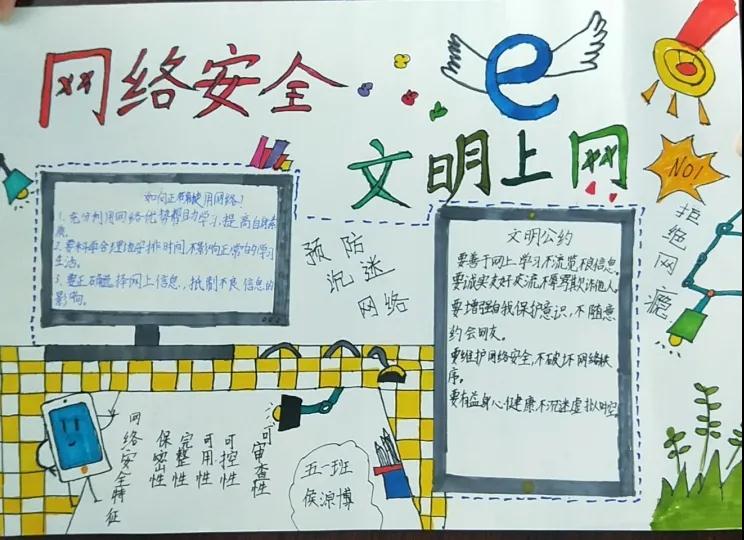 网络安全
e
文明上网
NO!
拒绝网瘾
如何正确使用网络?
1.充分利用网络优势帮助学习,提高自身素
质。
2.要科学合理安排时间,不影响正常的学习
生活。
3.要正确选择网上信息,抵制不良信息的
影响。
预防
沉迷
网络
文明公约
要善于网上学习,不流览不良信息。
要诚实友好交流,不辱骂欺诈他人。
要增强自我保护意识,不随意
约会网友。
要维护网络安全,不破坏网络秩
序。
要有益身心健康,不沉迷虚拟时空。
网络安全特征
保密性
完整性
可用性
可控性
可审查性
五一班
侯源博